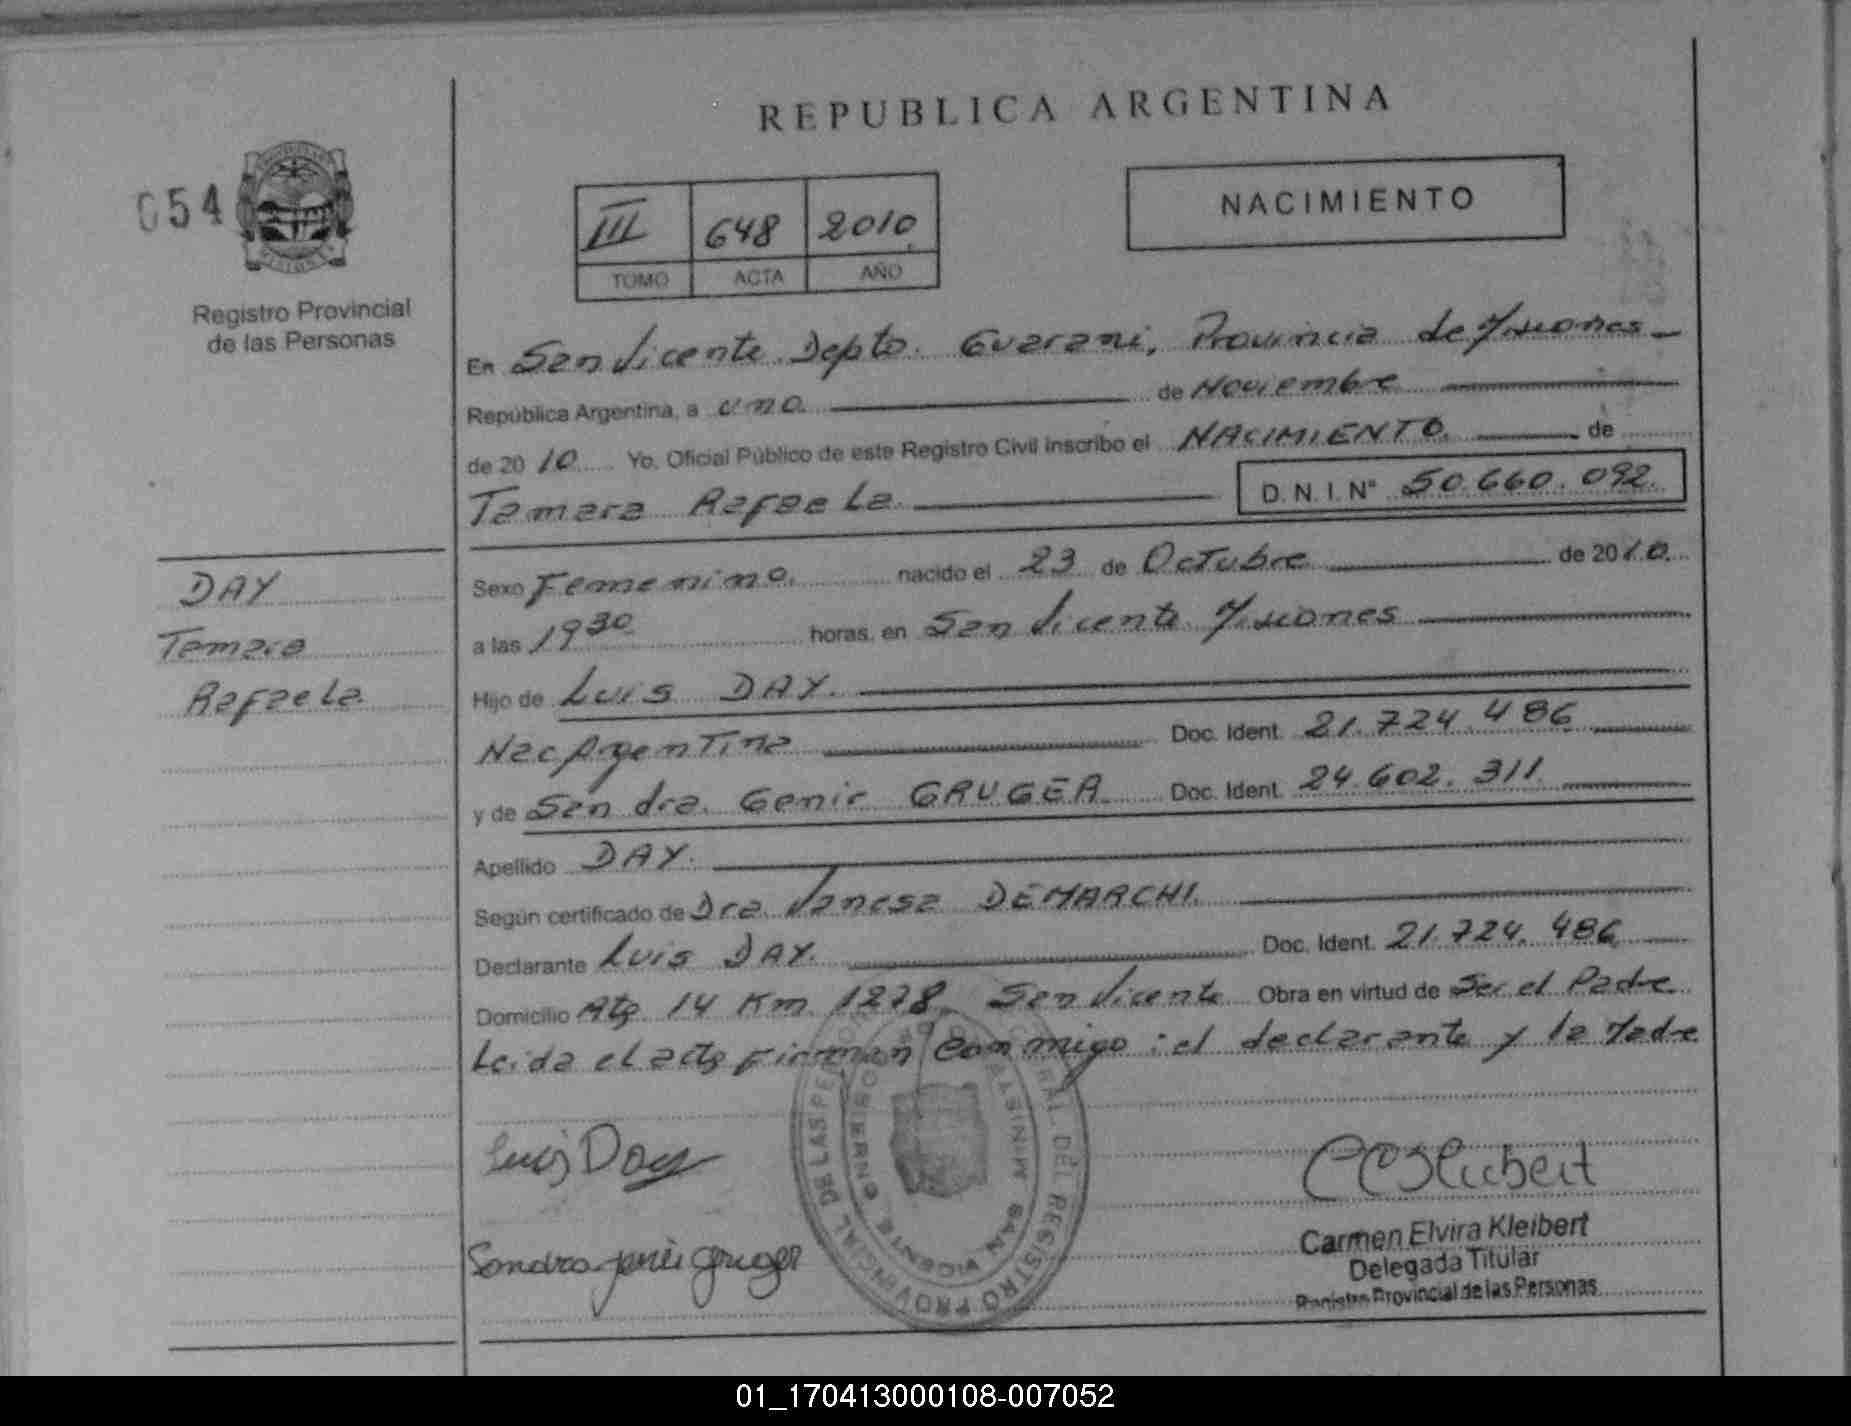 REPUBLICA ARGENTINA
054
NACIMIENTO
III 648 2010
TOMO ACTA AÑO
Registro Provincial
de las Personas
En San Vicente Depto. Guarani, Provincia de Misiones
República Argentina, a uno de Noviembre
de 2010 Yo, Oficial Público de este Registro Civil inscribo el NACIMIENTO de
Tamara Rafaela D.N.I. N° 50.660.092.
DAY
Tamara
Rafaela
Sexo Femenino. nacido el 23 de Octubre de 2010
a las 19 30 horas, en San Vicente Misiones
Hijo de Luis DAY.
Nac Argentina Doc. Ident. 21.724.486
y de Sandra Genir GRUGER Doc. Ident. 24.602.311
Apellido DAY.
Según certificado de Dra. Vanesa DEMARCHI.
Declarante Luis DAY. Doc. Ident. 21.724.486
Domicilio Rta 14 Km 1278, San Vicente Obra en virtud de Ser el Padre
Leida el acta firman conmigo: el declarante y la Madre
Luis Day
Sandra Genir Gruger
REGISTRO PROVINCIAL DE LAS PERSONAS
SAN VICENTE
CCKleibert
Carmen Elvira Kleibert
Delegada Titular
Registro Provincial de las Personas
01_170413000108-007052